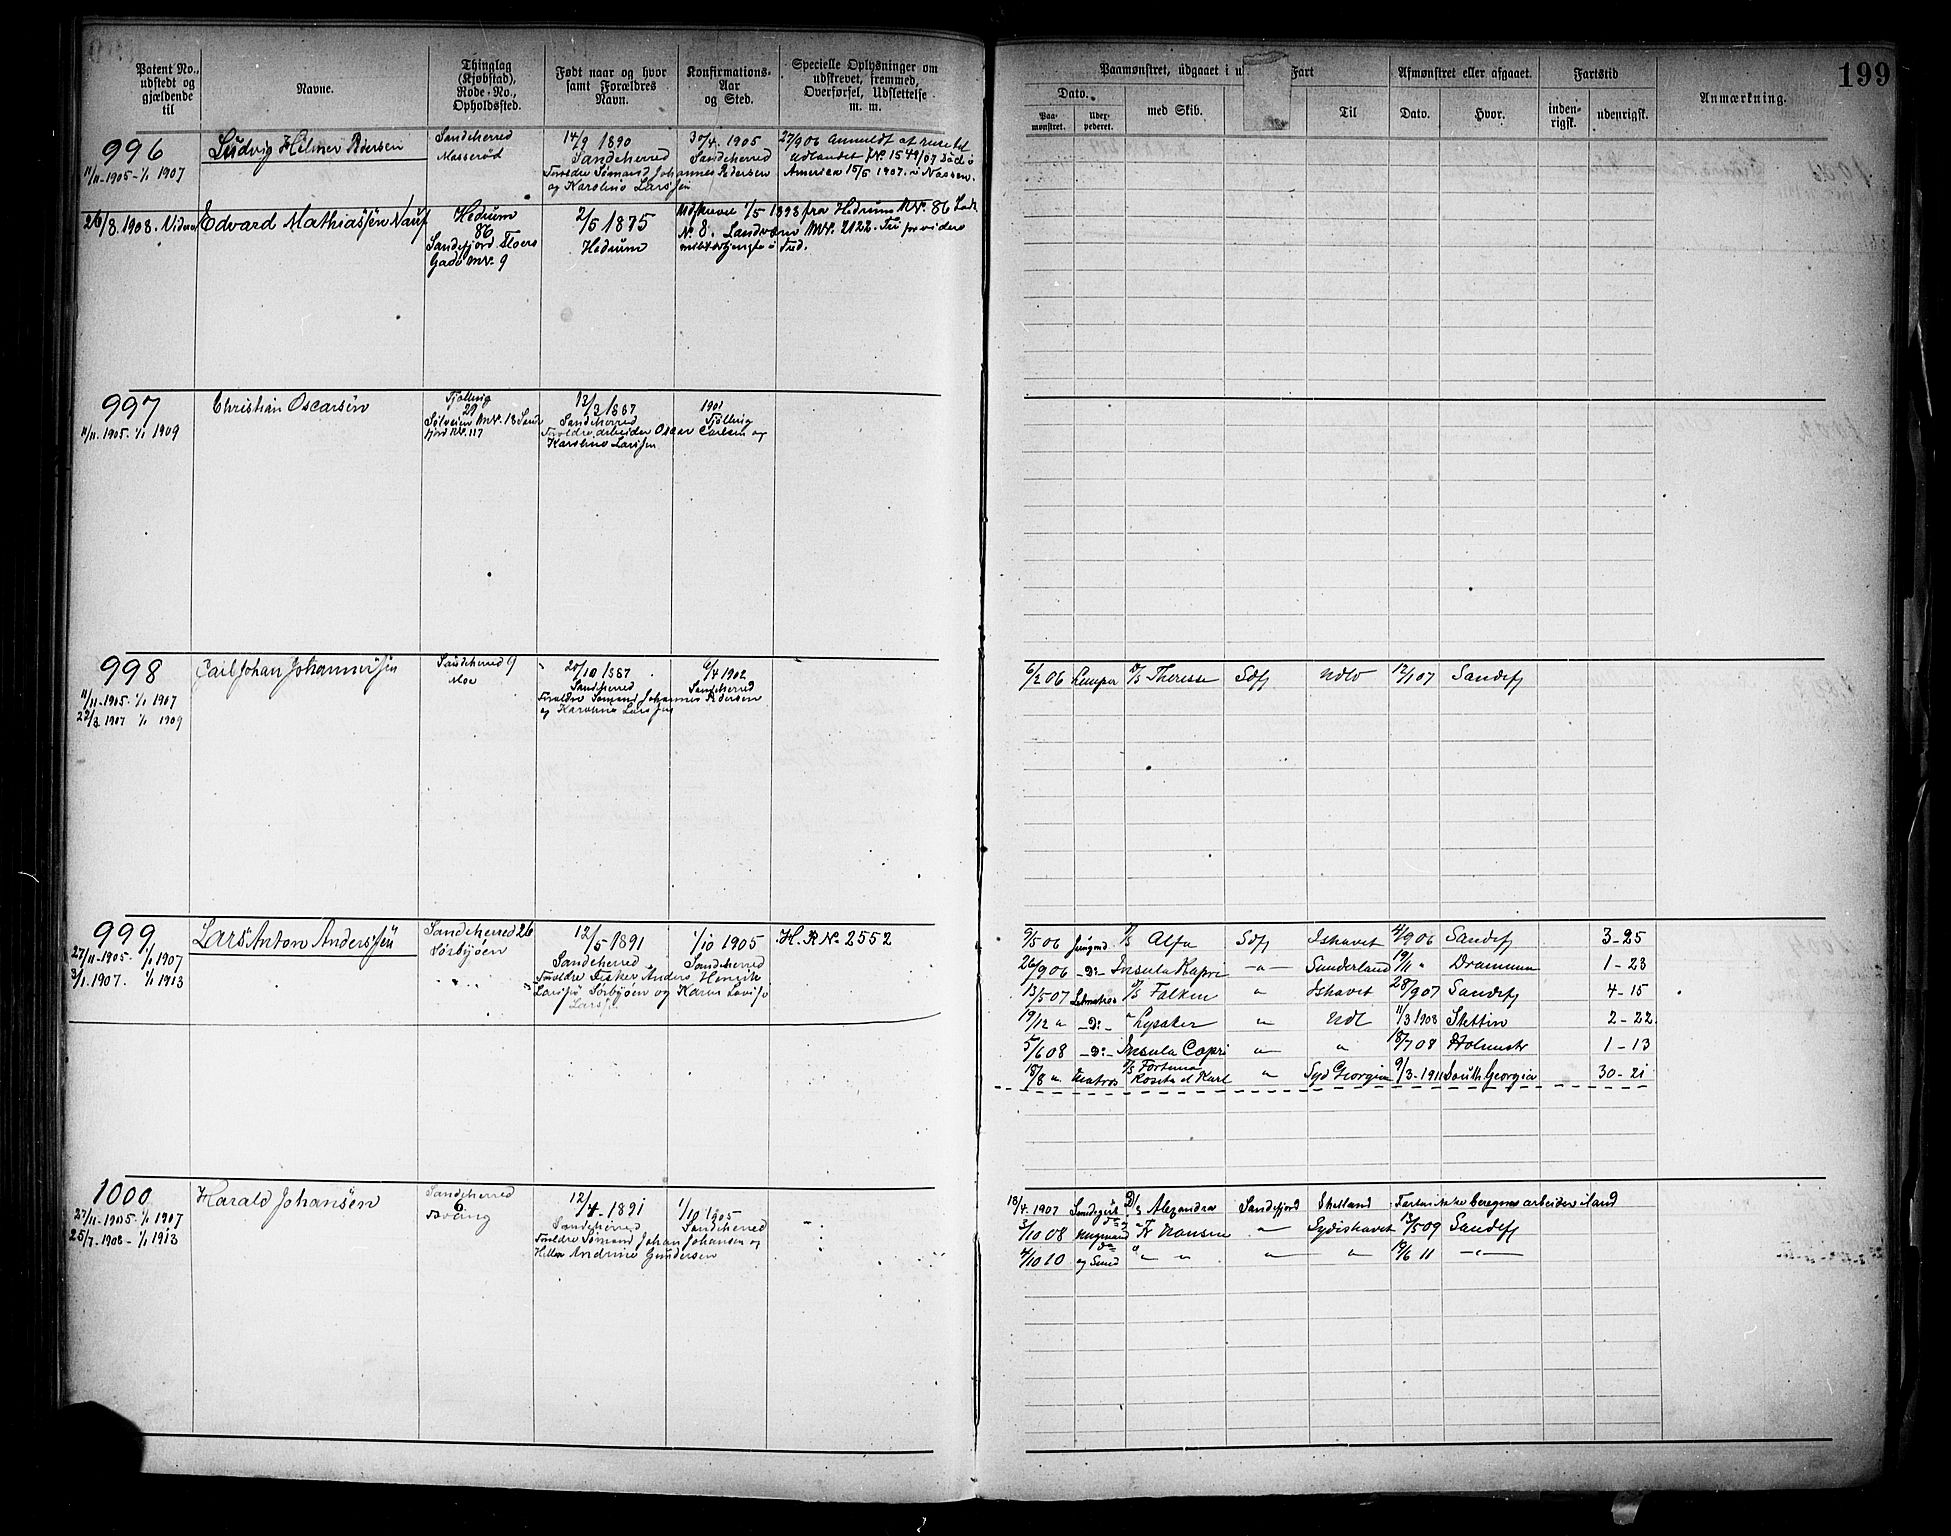 Patent No., udstedt og gjældende til
Navne.
Thinglag (Kjøbstad), Rode-No., Opholdssted.
Født naar og hvor samt Forældres Navn.
Konfirmations-Aar og Sted.
Specielle Oplysninger om udskrevet, fremmed, Overførsel, Udslettelse m. m.
Paamønstret, udgaaet i u Fart
Afmønstret eller afgaaet.
Fartstid
Anmærkning.
199
Dato.
Paamønstret.
med Skib.
Til
Dato.
Hvor.
indenrigsk.
udenrigsk.
996
11/11-1905-1/1 1907
Ludvig Hilmer Pedersen
Sandeherred
Massерød
14/9 1890
Sandeherred
Forældre Sømand Johannes Pedersen
og Karoline Larssen
30/4. 1905
Sandeherred
27/9 06 Anmeldt at reise til
Udlandet JNo 1549/07 Død i
America 15/5 1907.
26/8.1908.
Edvard Mathiassen Nauf
Hedrum
86
Sandefjord
Gade No. 9
2/5 1875
Hedrum
Udskreve 1/5 1898 fra Hedrum No. 86
No 8. Landværn No. 2122.
997
11/11.1905.1/1 1909
Christian Oscarsen
Tjølling
29
12/3 1887
Sandeherred
Forældre Arbeider Oscar Carlsen og
Karoline Larssen
1901
Tjølling
998
11/11-1905.1/1 1907
22/3 1907 1/1 1909
Carl Johan Johannessen
Sandeherred 9
Moe
20/10 1887
Sandeherred
Forældre Sømand Johannes Pedersen
og Karoline Larssen
6/4 1902
Sandeherred
6/2 06 Lemper S/S Therese Sdfj Udl 12/1 07 Sandefj
999
27/11-1905. 1/1 1907
3/1.1907. 1/1 1913
Lars Anton Anderssen
Sandeherred 26
Sørbyøen
12/5 1891
Sandeherred
Forældre Fisker Anders Henrik
Larssen Sørbyøen og Karen Lovise
Larsd.
1/10 1905
Sandeherred
H. R No. 2552
9/5 06 Jungmd S/S Alfa Sdfj Ishavet 4/9 06 Sandefj 3-25
26/9 06 -Do- Insula Kapri -"- Sunderland 19/11 " Drammen 1-23
13/5 07 Letmatros S/S Falken " Ishavet 28/9 07 Sandefj 4-15
19/12 " -Do- " Lysaker " Udl 11/3 1908 Stettin 2-22
5/6 08 -Do- Insula Capri " " 18/7 08 Holmestr 1-13
18/8 ". Matros S/S Fortuna
Rosita el Karl " Syd Georgia 9/3-1911 South Georgia 30-21
1000
27/11-1905.1/1 1907
25/7-1908-1/1 1913
Harald Johansen
Sandeherred
6
12/4-1891
Sandeherred
Forældre Sømand Johan Johansen og
Andrine Gundersen
1/10 1905
Sandeherred
18/4.1907 D/S Alexandra Sandefjord Shetland Farten ikke beregnes arbeider i land
3/10 08 Fr Nansen " Sydishavet 13/5 09 Sandefj
4/10 10 og Smed " " " " " 19/6 11 -"-